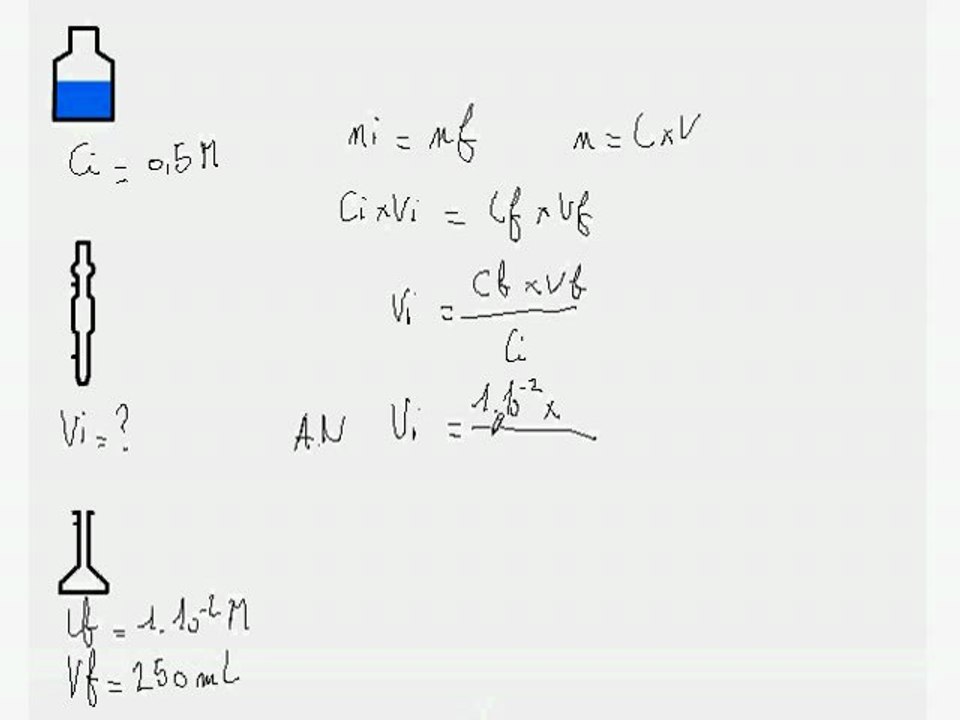 Ci = 0,5 M
ni = nf
n = C×V
Ci×Vi = Cf×Vf
Vi = Cf×Vf / Ci
Vi = ?
A.N Vi = 1.10⁻² ×
Cf = 1.10⁻² M
Vf = 250 mL